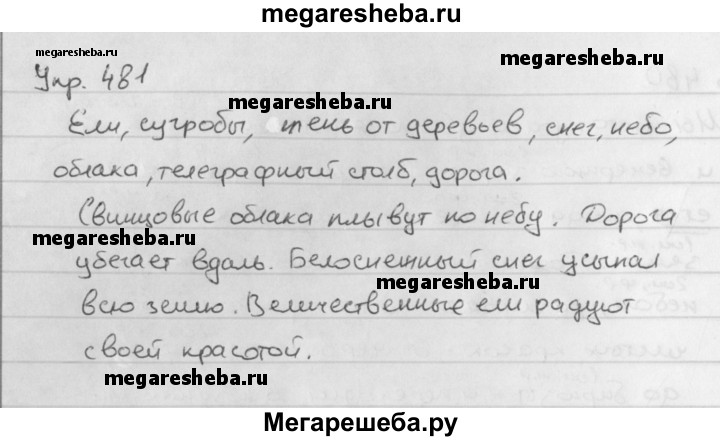 megaresheba.ru
megaresheba.ru
megaresheba.ru
Упр. 481
megaresheba.ru
Ели, сугробы, тень от деревьев, снег, небо,
облака, телеграфный столб, дорога.
Свинцовые облака плывут по небу. Дорога
megaresheba.ru
убегает вдаль. Белоснежный снег усыпал
megaresheba.ru
всю землю. Величественные ели радуют
своей красотой.
megaresheba.ru
Мегарешеба.ру